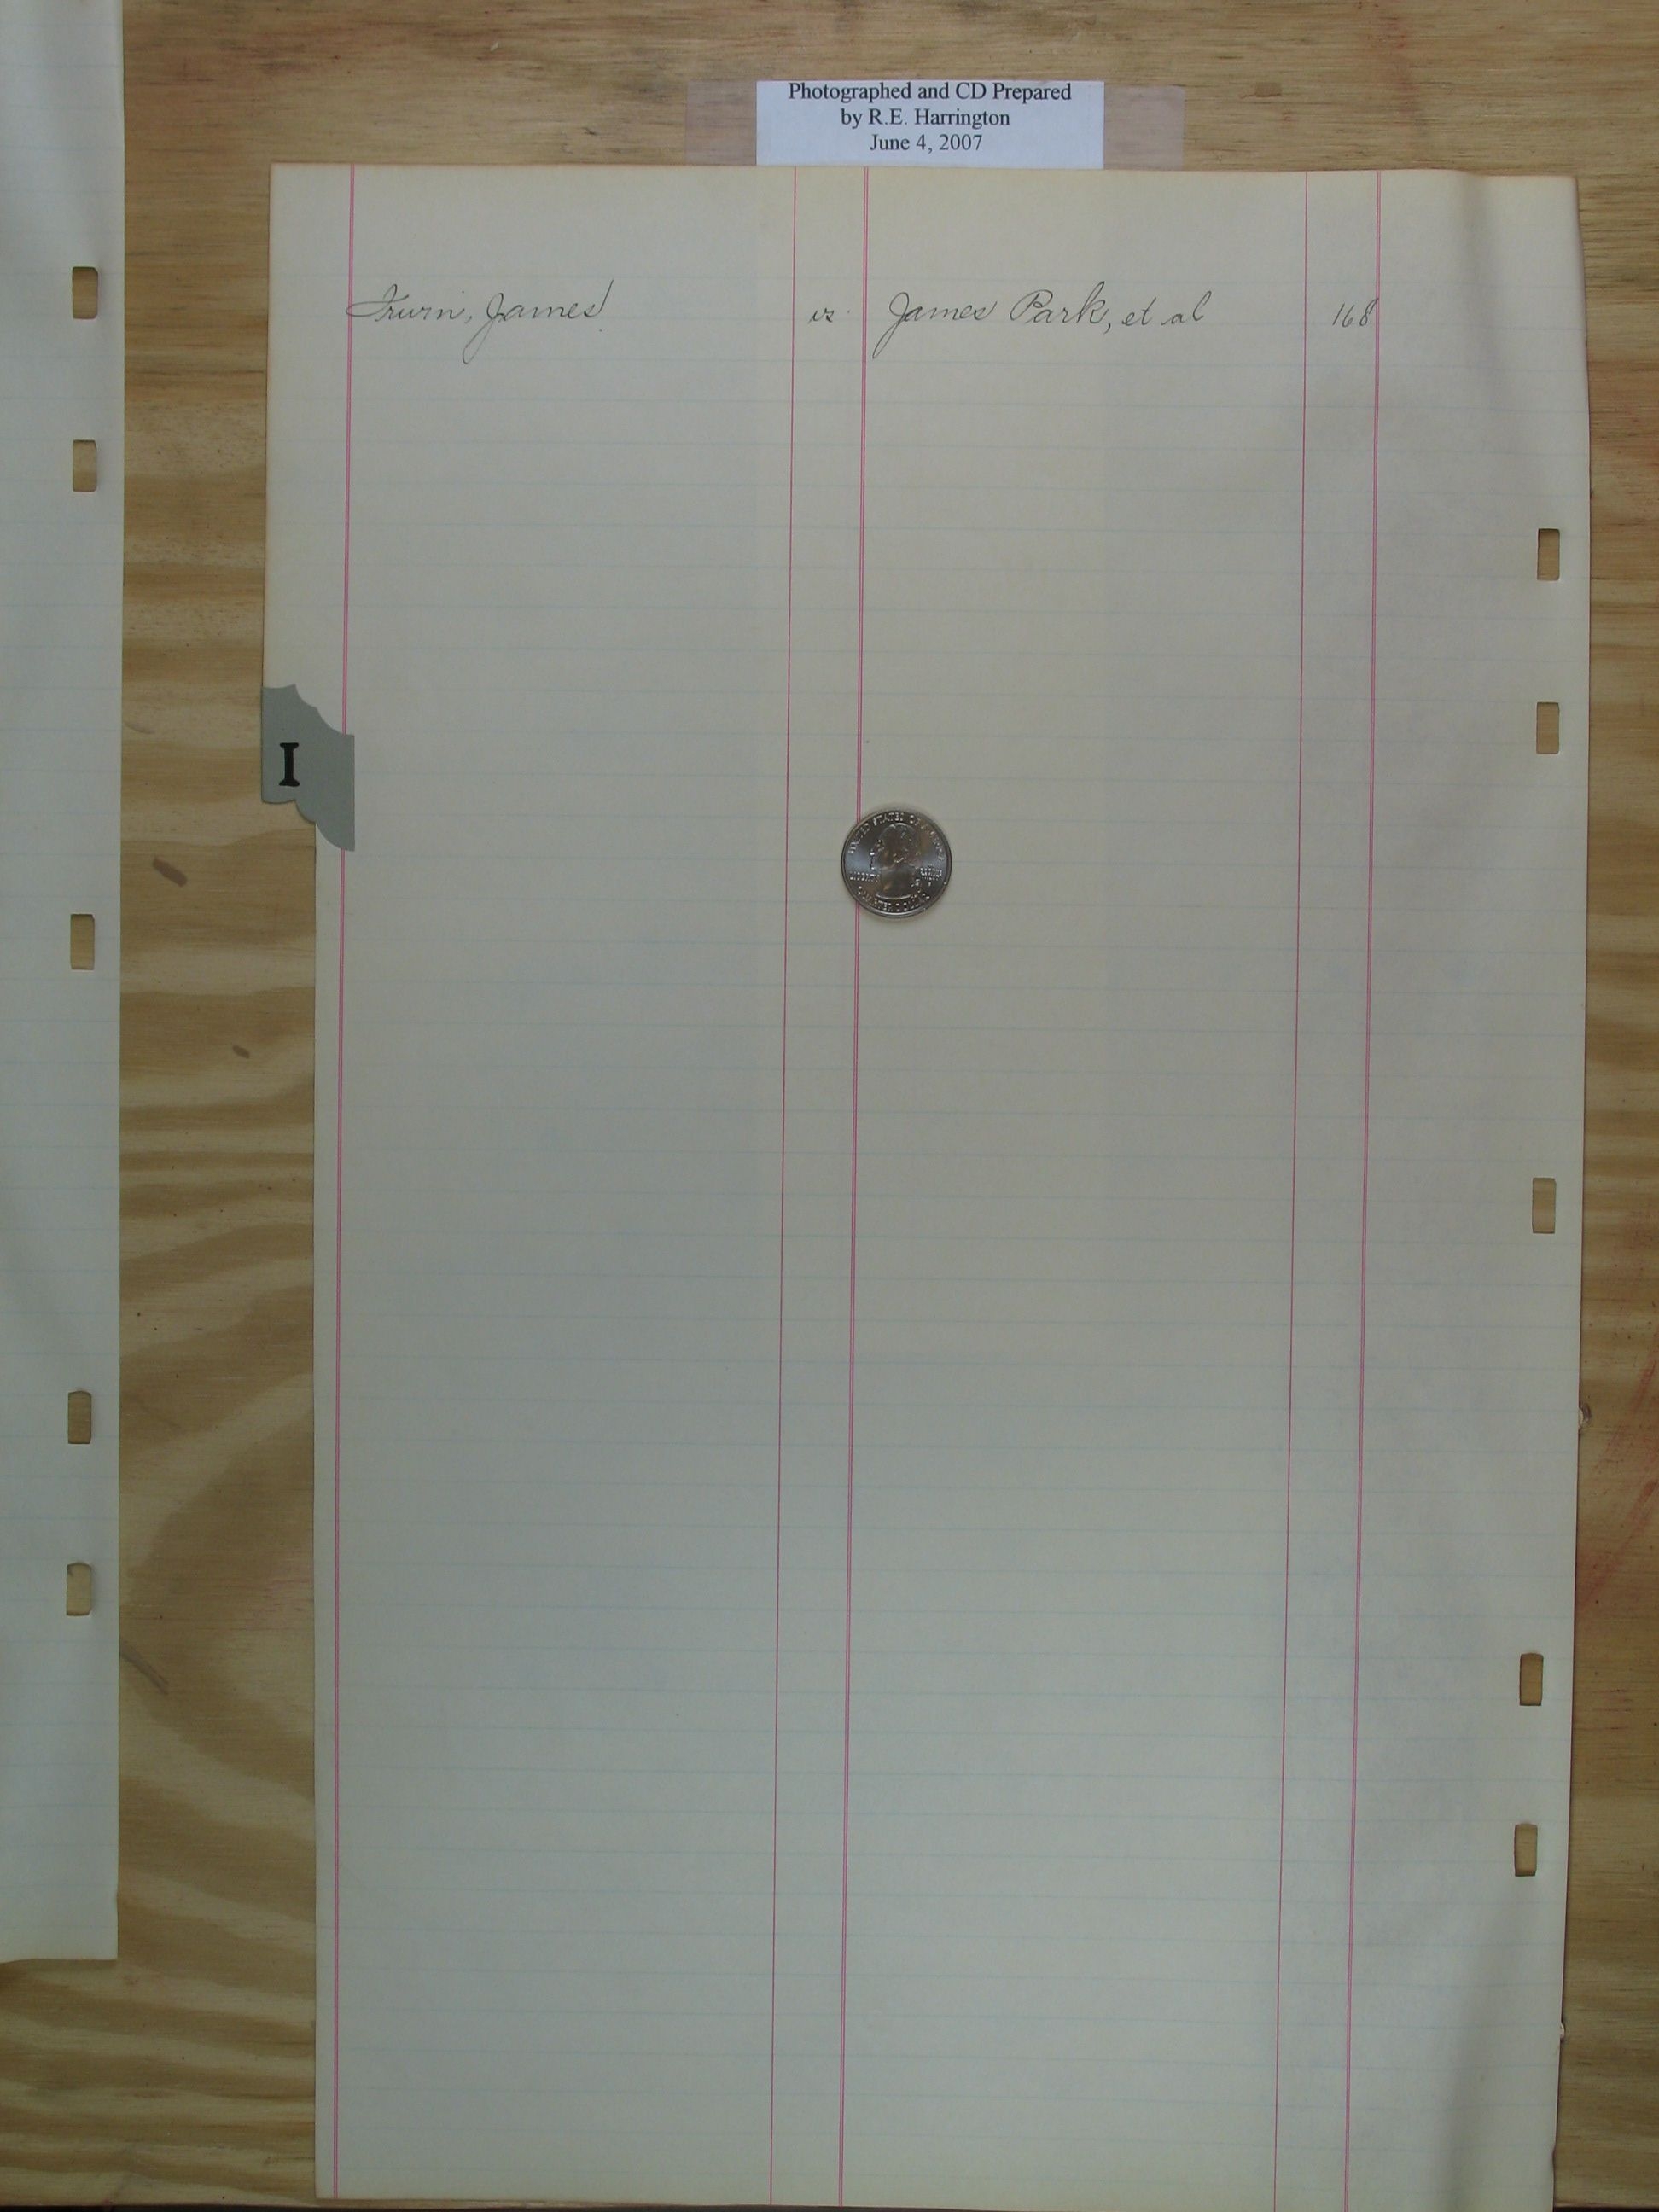 Photographed and CD Prepared
by R.E. Harrington
June 4, 2007
Irwin, James vs. James Park, et al 168
I
LIBERTY
QUARTER DOLLAR